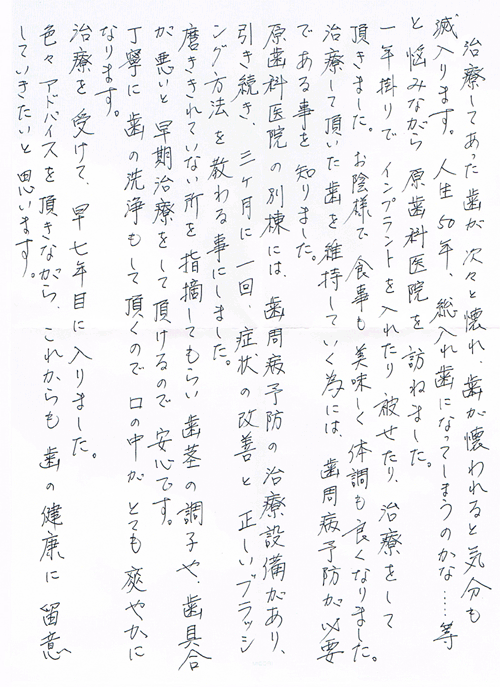 治療してあった歯が次々と懐れ、歯が懐われると気分も
滅入ります。人生50年、総入れ歯になってしまうのかな……等
と悩みながら原歯科医院を訪ねました。
一年掛りでインプラントを入れたり被せたり、治療をして
頂きました。お陰様で、食事も美味しく体調も良くなりました。
治療して頂いた歯を維持していく為には、歯周病予防が必要
である事を知りました。
原歯科医院の別棟には、歯周病予防の治療設備があり、
引き続き、三ヶ月に一回、症状の改善と正しいブラッシ
ング方法を教わる事にしました。
磨ききれていない所を指摘してもらい歯茎の調子や、歯具合
が悪いと早期治療をして頂けるので安心です。
丁寧に歯の洗浄もして頂くので口の中がとても爽やかに
なります。
治療を受けて、早七年目に入りました。
色々アドバイスを頂きながら、これからも歯の健康に留意
していきたいと思います。